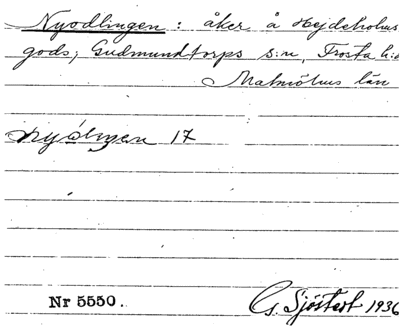 Nyodlingen : åker å Hejdeholms
gods; Gudmundtorps s:n, Frosta h:d
Malmöhus län
nyólingen 17
Nr 5550.
G. Sjöstedt 1936